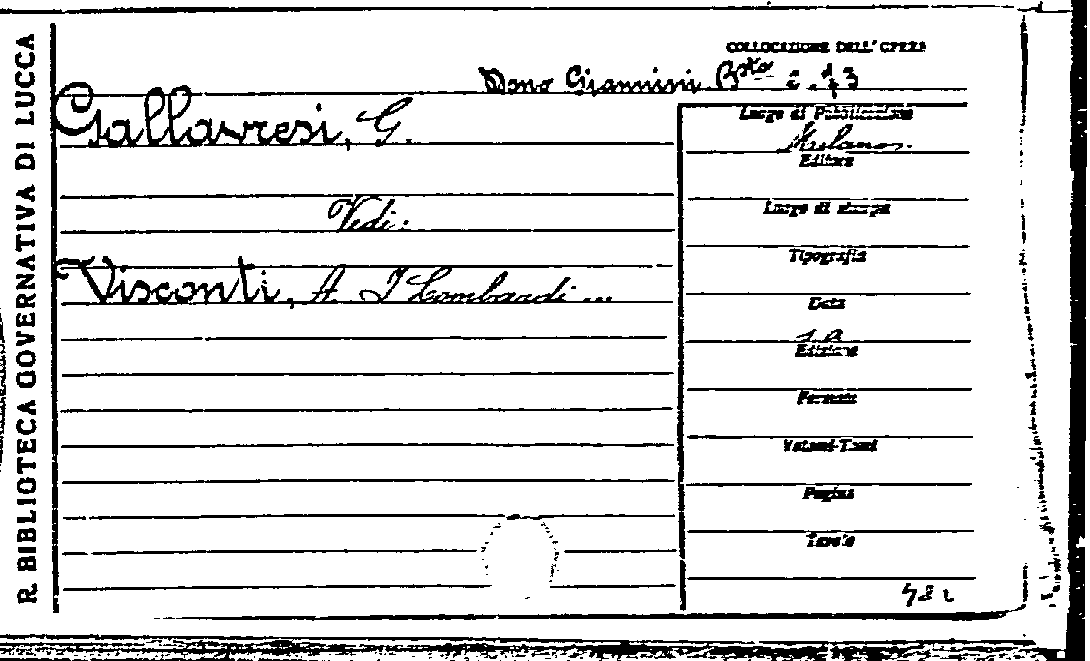 R. BIBLIOTECA GOVERNATIVA DI LUCCA
COLLOCAZIONE DELL'OPERA
Dono Giannini Bsta
Gallavresi, G.
Vedi:
Visconti, A. I Lombardi...
Luogo di Pubblicazione
Milano.
Editore
Luogo di stampa
Tipografia
Data
s. a.
Edizione
Formato
Volumi-Tomi
Pagine
Tavole